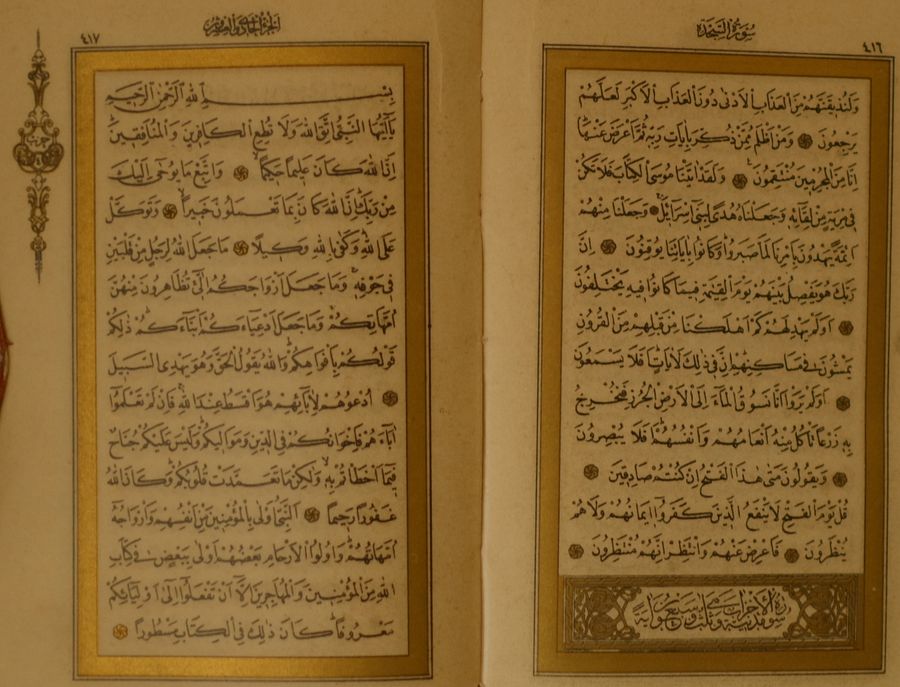 سورة السجدة
٤١٦
ولنذيقنهم من العذاب الأدنى دون العذاب الأكبر لعلهم
يرجعون ومن أظلم ممن ذكر بآيات ربه ثم أعرض عنها
إنا من المجرمين منتقمون ولقد آتينا موسى الكتاب فلا تكن
في مرية من لقائه وجعلناه هدى لبني إسرائيل وجعلنا منهم
أئمة يهدون بأمرنا لما صبروا وكانوا بآياتنا يوقنون إن
ربك هو يفصل بينهم يوم القيمة فيما كانوا فيه يختلفون
أولم يهد لهم كم أهلكنا من قبلهم من القرون
يمشون في مساكنهم إن في ذلك لآيات أفلا يسمعون
أولم يروا أنا نسوق الماء إلى الأرض الجرز فنخرج
به زرعا تأكل منه أنعامهم وأنفسهم أفلا يبصرون
ويقولون متى هذا الفتح إن كنتم صادقين
قل يوم الفتح لا ينفع الذين كفروا إيمانهم ولا هم
ينظرون فأعرض عنهم وانتظر إنهم منتظرون
سورة الأحزاب مدنية وهي ثلث وسبعون آية
الجزء الحادي والعشرون
٤١٧
بسم الله الرحمن الرحيم
يا أيها النبي اتق الله ولا تطع الكافرين والمنافقين
إن الله كان عليما حكيما واتبع ما يوحى إليك
من ربك إن الله كان بما تعملون خبيرا وتوكل
على الله وكفى بالله وكيلا ما جعل الله لرجل من قلبين
في جوفه وما جعل أزواجكم اللائي تظاهرون منهن
أمهاتكم وما جعل أدعياءكم أبناءكم ذلكم
قولكم بأفواهكم والله يقول الحق وهو يهدي السبيل
ادعوهم لآبائهم هو أقسط عند الله فإن لم تعلموا
آباءهم فإخوانكم في الدين ومواليكم وليس عليكم جناح
فيما أخطأتم به ولكن ما تعمدت قلوبكم وكان الله
غفورا رحيما النبي أولى بالمؤمنين من أنفسهم وأزواجه
أمهاتهم وأولوا الأرحام بعضهم أولى ببعض في كتاب
الله من المؤمنين والمهاجرين إلا أن تفعلوا إلى أوليائكم
معروفا كان ذلك في الكتاب مسطورا